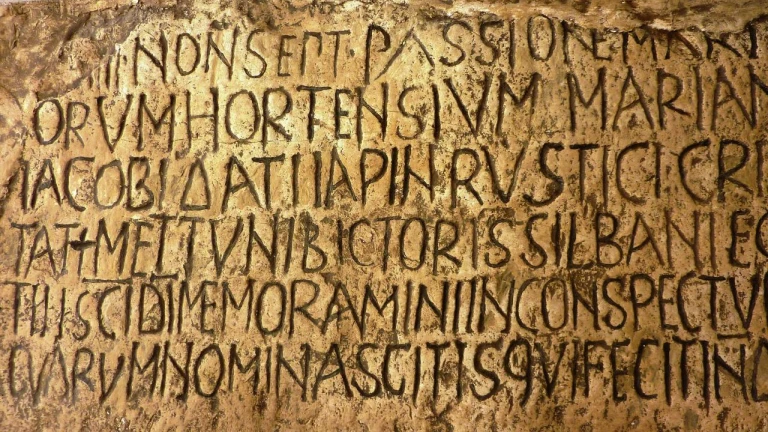 IIII NONSEPT·PASSIONEMARTV
ORVMHORTENSIVM MARIAN
IACOBIDATIIAPINRVSTICICRI
TATI+METTVNIBICTORISSILBANIEG
TIISCIDIMEMORAMINIINCONSPECTV
QVARVMNOMINASCITISQVIFECITIND